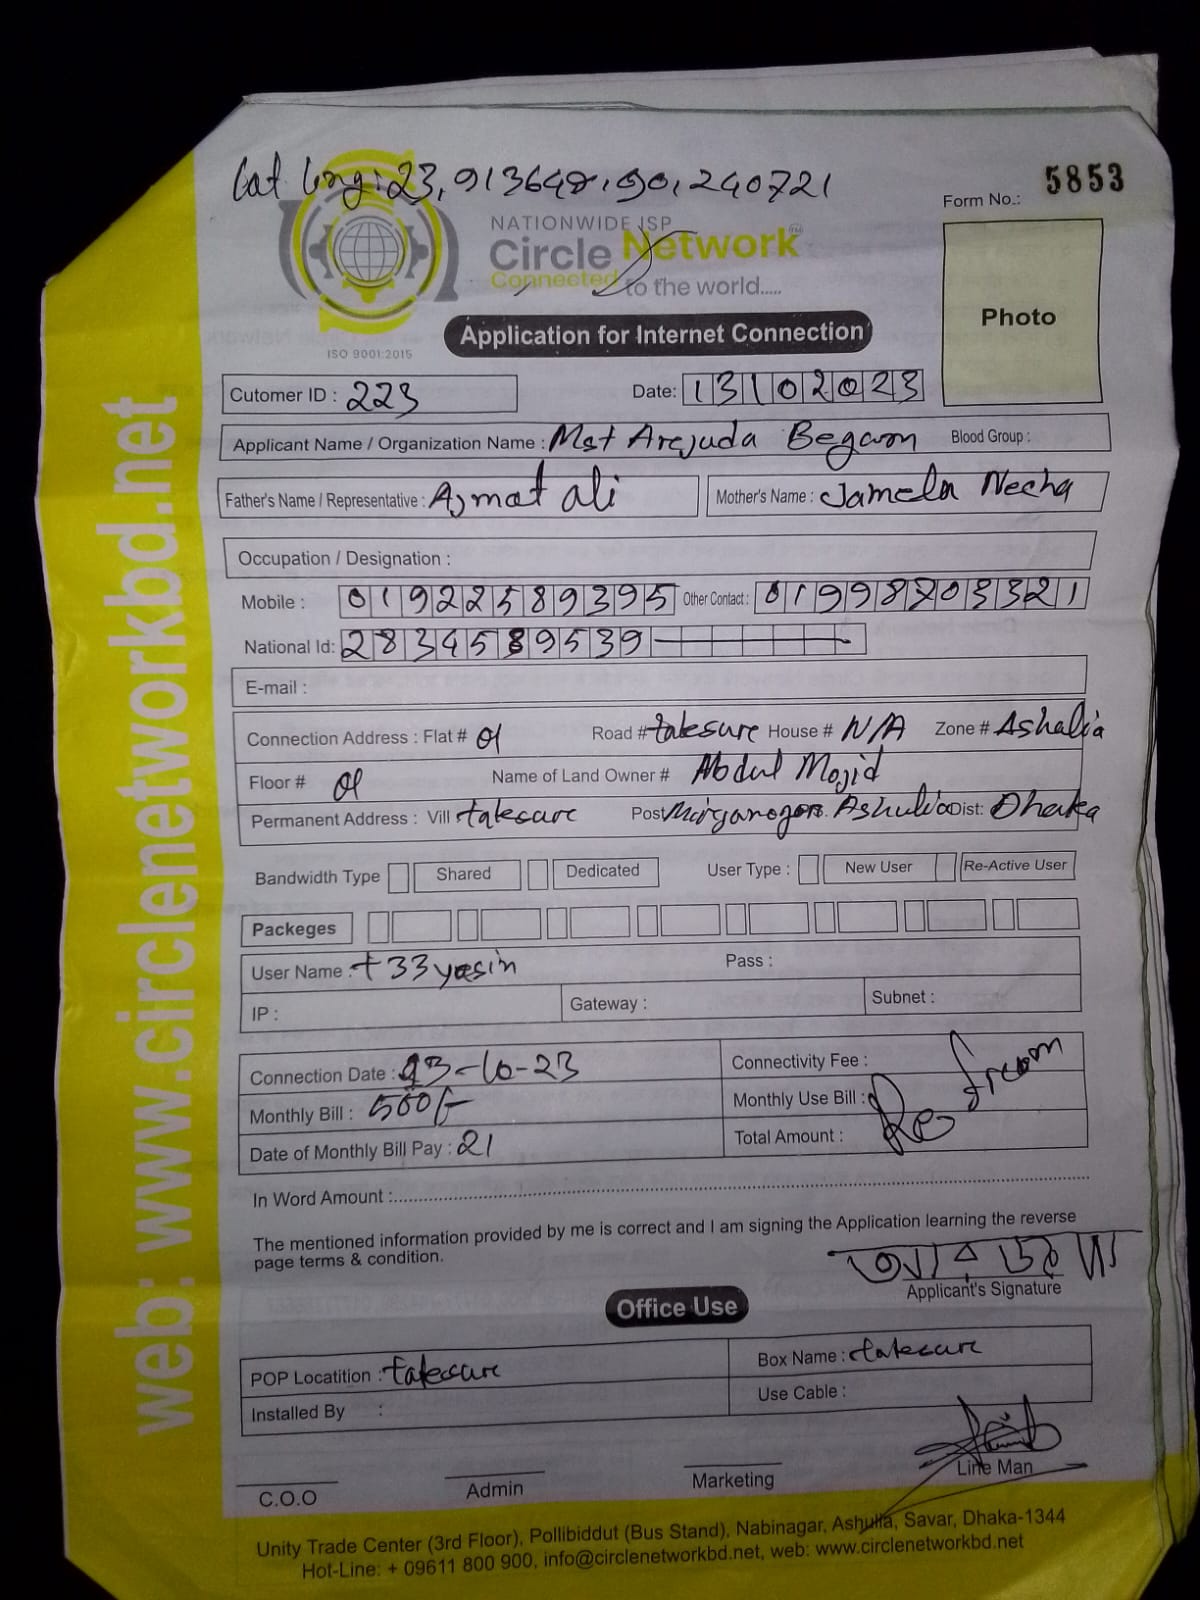 Lat long: 23,913648,90,240721
5853
Form No.:
NATIONWIDE ISP
Circle Network™
Connected to the world.....
Photo
ISO 9001:2015
Application for Internet Connection
Cutomer ID : 223
Date: 13102023
Applicant Name / Organization Name : Mst Arejuda Begam Blood Group :
Father's Name / Representative : Ajmat ali Mother's Name : Jamela Necha
Occupation / Designation :
Mobile : 01922589395 Other Contact : 01998703321
National Id: 2834589539
E-mail :
Connection Address : Flat # 01 Road # takesure House # N/A Zone # Ashalia
Floor # 01 Name of Land Owner # Abdul Mojid
Permanent Address : Vill takesure Post Mirganogor Ashulia Dist: Dhaka
Bandwidth Type Shared Dedicated User Type : New User Re-Active User
Packeges
User Name : t33yasin Pass :
IP : Gateway : Subnet :
Connection Date : 23-10-23 Connectivity Fee :
Monthly Bill : 500/- Monthly Use Bill :
Date of Monthly Bill Pay : 21 Total Amount :
In Word Amount :
The mentioned information provided by me is correct and I am signing the Application learning the reverse
page terms & condition.
Applicant's Signature
Office Use
POP Locatition : takesure Box Name : takesure
Installed By : Use Cable :
C.O.O Admin Marketing Line Man
Unity Trade Center (3rd Floor), Pollibiddut (Bus Stand), Nabinagar, Ashulia, Savar, Dhaka-1344
Hot-Line: + 09611 800 900, info@circlenetworkbd.net, web: www.circlenetworkbd.net
web: www.circlenetworkbd.net